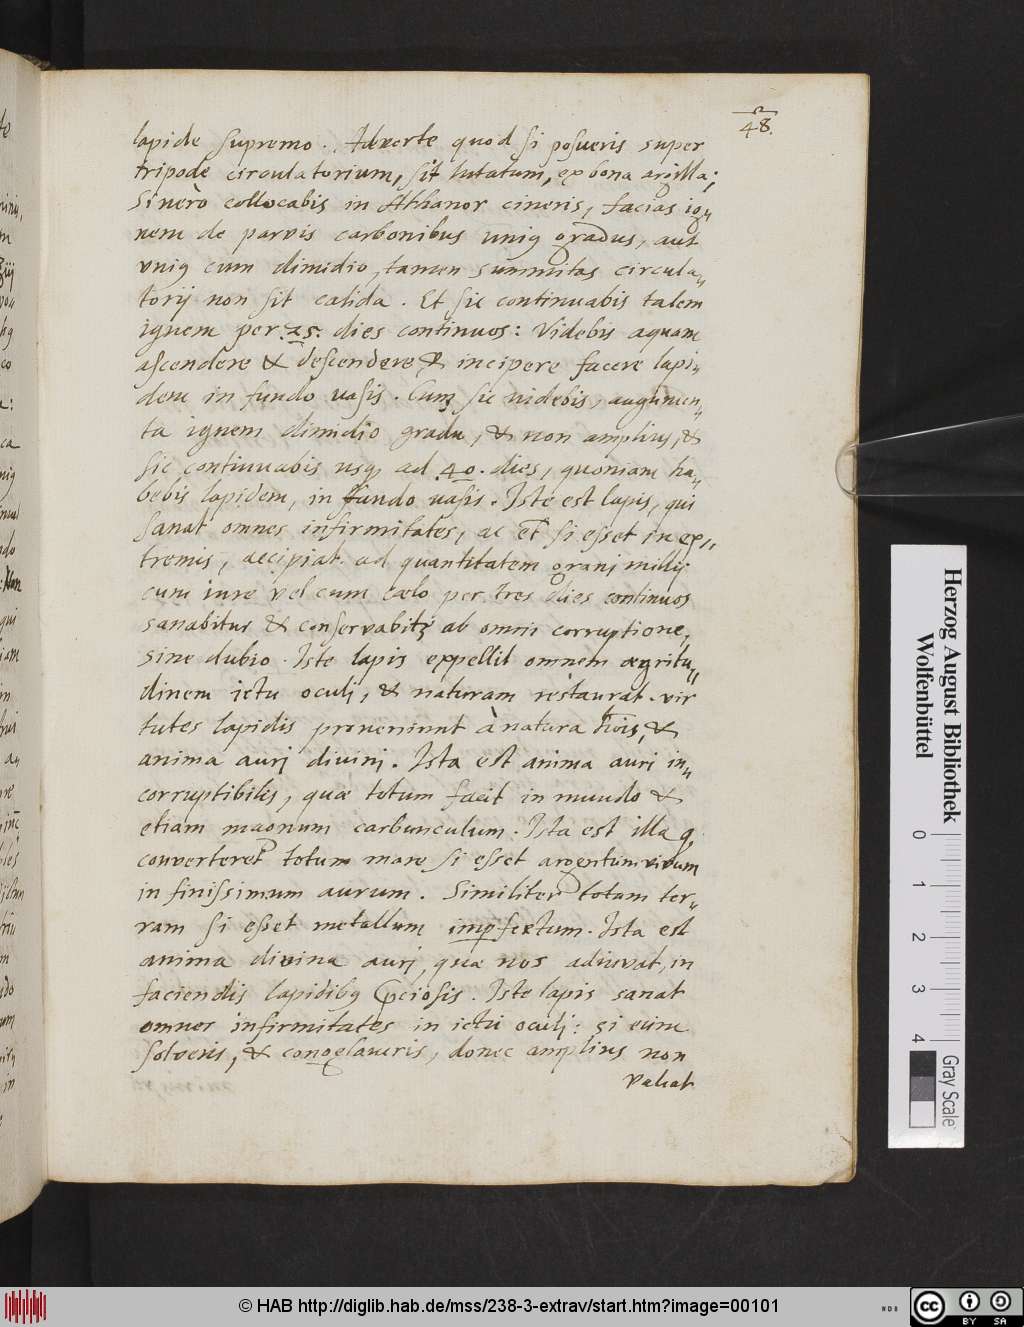 48.
lapide supremo. Adverte quod si posueris super
tripode circulatorium, sit lutatum, ex bona argilla;
Si verò collocabis in Athanor cineris, facias ig„
nem de parvis carbonibus unig gradus, aut
vnig cum dimidio, tamen summitas circula„
torij non sit calida. Et sic continuabis talem
ignem per .25. dies continuos: Videbis aquam
ascendere & descendere & incipere facere lapi„
dem in fundo vasis. Cum sic videbis, augumen„
ta ignem dimidio gradu, & non amplius, &
sic continuabis usq, ad .40. dies, quoniam ha„
bebis lapidem, in fundo vasis. Iste est lapis, qui
sanat omnes infirmitates, ac et si esset in ex„
tremis, accipiat ad quantitatem granj milij
cum iure vel cum cælo per tres dies continuos
sanabitur & conservabitz ab omni corruptione,
sine dubio. Iste lapis expellit omnem ægritu„
dinem ictu oculj, & naturam restaurat. vir
tutes lapidis proveniunt à natura &
anima aurj divinj. Ista est anima auri in„
corruptibilis, quæ totum facit in mundo &
etiam magnum carbunculum. Ista est illa q,
converteret totum mare si esset argentum vivum
in finissimum aurum. Similiter totam ter„
ram si esset metallum imperfectum. Ista est
anima divina aurj, quæ nos adiuvat, in
faciendis lapidibg pciosis. Iste lapis sanat
omnes infirmitates in ictu oculj: si eum
solveris, & congelaveris, donec amplius non
valeat
Herzog August Bibliothek
Wolfenbüttel
0 1 2 3 4
Gray Scale
© HAB http://diglib.hab.de/mss/238-3-extrav/start.htm?image=00101
cc BY SA